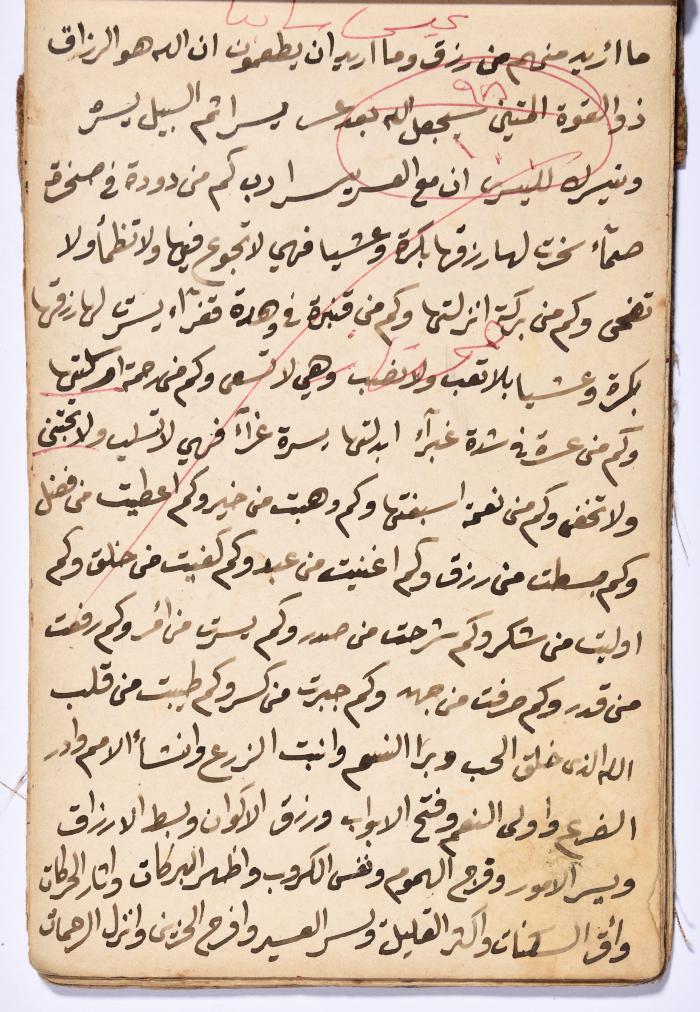 ما اريد منهم من رزق وما اريد ان يطعمون ان الله هو الرزاق
ذو القوة المتين سيجعل الله بعد عسر يسرا ثم السبيل يسره
ونيسرك لليسرى ان مع العسر يسرا رب كم من دودة في صخرة
صمآء سخرت لها رزقها بكرة وعشيا فهي لا تجوع فيها ولا تظمأ ولا
تضحى وكم من بركة انزلتها وكم من قنبرة في وهدة قفرآء يسرت لها رزقها
بكرة وعشيا بلا تعب ولا نصب وهي لا تسعى وكم من رحمة ارسلتها
وكم من عسرة في شدة غبرآء ابدلتها يسرة غرآء فهي لا تسلب ولا تجتنى
ولا تخفى وكم من نعمة اسبغتها وكم وهبت من خير وكم اعطيت من فضل
وكم بسطت من رزق وكم اغنيت من عبد وكم كفيت من خلق وكم
اوليت من شكر وكم شرحت من صدر وكم يسرت من امر وكم رفعت
من قدر وكم صرفت من جهد وكم جبرت من كسر وكم طيبت من قلب
الله الذى خلق الحب وبرا النسم وانبت الزرع وانشأ الامم وادر
الضرع واولى النعم وفتح الابواب ورزق الاكوان وبسط الارزاق
ويسر الامور وفرج الهموم ونفس الكروب واظهر البركات واثار الحركات
واقر السكنات واكثر القليل ويسر العسير وافرح الحزين وانزل الرحمات